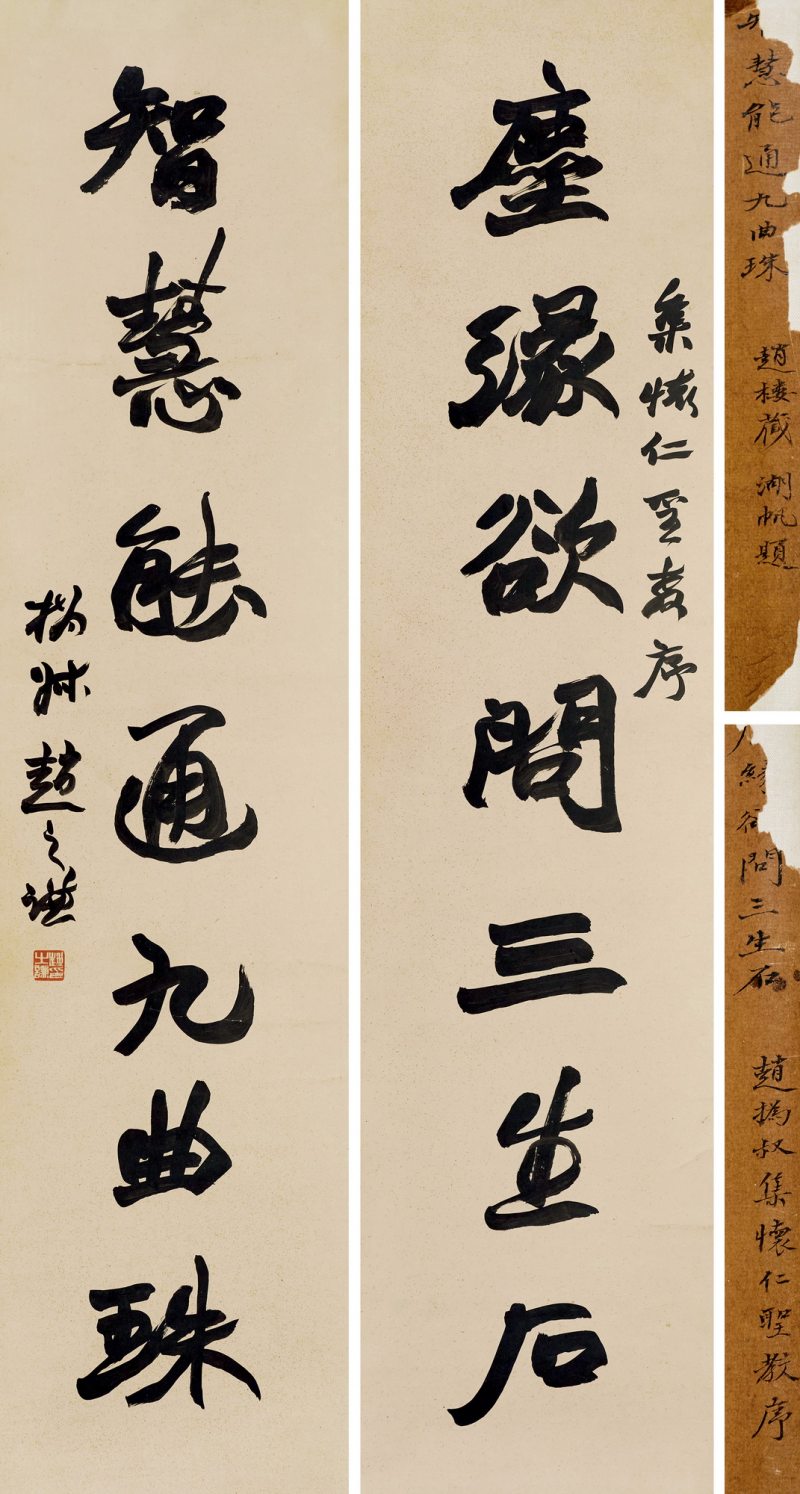 塵緣欲問三生石
集懷仁聖教序
智慧能通九曲珠
撝叔趙之謙
慧能通九曲珠
趙棲藏
湖帆題
緣欲問三生石
趙撝叔集懷仁聖教序